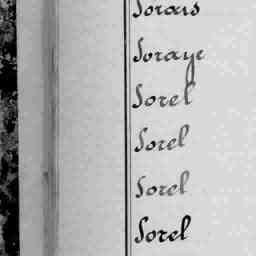 Sorais
Soraye
Sorel
Sorel
Sorel
Sorel